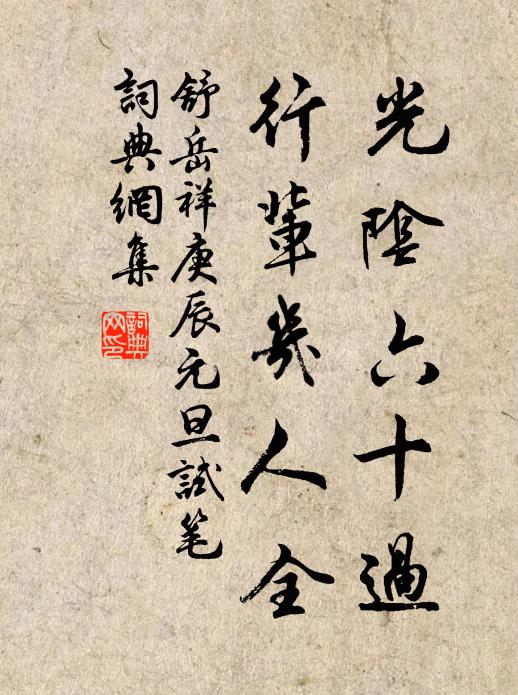 光陰六十過
行輩幾人全
舒岳祥庚辰元旦試笔
詞典網集
詞典网印